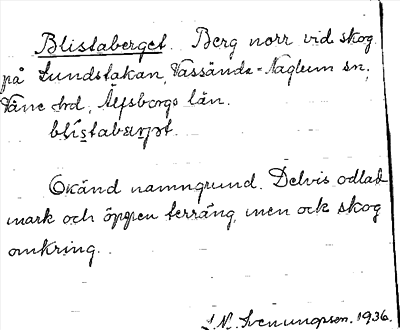 Blistaberget. Berg norr vid skog
på Lundstakan, Vassända-Naglum sn,
Väne hrd, Älfsborgs län.
Okänd namngrund. Delvis odlad
mark och öppen terräng, men ock skog
omkring.
Svenungsson. 1936.